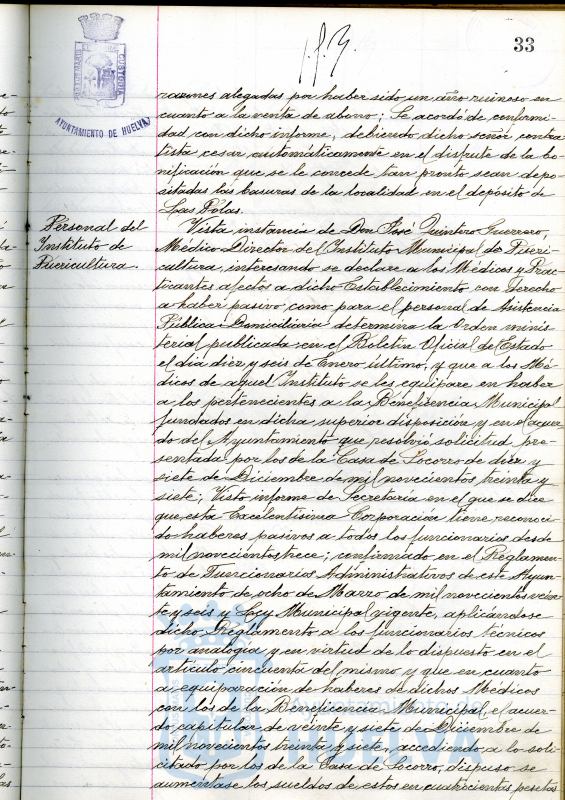 33
CUSTODIA
AYUNTAMIENTO DE HUELVA
razones alegadas por haber sido un año ruinoso en
cuanto a la venta de abono; Se acordó de conformi-
dad con dicho informe, debiendo dicho señor contra
tista cesar automáticamente en el disfrute de la bo-
nificación que se le concede tan pronto sean depo-
sitadas las basuras de la localidad en el depósito de
Las Pólas.
Personal del
Instituto de
Puericultura.
Vista instancia de Don José Quintero Guerrero,
Médico-Director del Instituto Municipal de Pueri-
cultura, interesando se declare a los Médicos y Prac-
ticantes afectos a dicho Establecimiento, con derecho
a haber pasivo como para el personal de Asistencia
Pública Domiciliaria determina la Orden minis
terial publicada en el Boletín Oficial del Estado
el dia diez y seis de Enero último, y que a los Mé-
dicos de aquel Instituto se les equipare en haber
a los pertenecientes a la Beneficencia Municipal
fundados en dicha superior disposición y en el acuer-
do del Ayuntamiento que resolvió solicitud pre-
sentada por los de la Casa de Socorro de diez y
siete de Diciembre de mil novecientos treinta y
siete; Visto informe de Secretaría en el que se dice
que esta Excelentísima Corporación tiene reconoci
do haberes pasivos a todos los funcionarios desde
mil novecientos trece; confirmado en el Reglamen-
to de Funcionarios Administrativos de este Ayun-
tamiento de ocho de Marzo de mil novecientos vein-
te y seis y Ley Municipal vigente, aplicándose
dicho Reglamento a los funcionarios técnicos
por analogía y en virtud de lo dispuesto en el
artículo cincuenta del mismo y que en cuanto
a equiparación de haberes de dichos Médicos
con los de la Beneficencia Municipal, el acuer-
do capitular de veinte y siete de Diciembre de
mil novecientos treinta y siete, accediendo a lo soli-
citado por los de la Casa de Socorro, dispuso se
aumentase los sueldos de estos en cuatrocientas pesetas
HUELVA